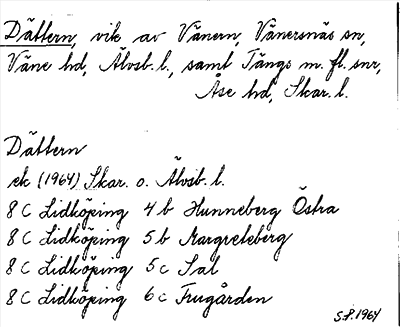 Dättern, vik av Vänern, Vänersnäs sn,
Väne hd, Älvsb. l., samt Tängs m. fl. snr,
Åse hd, Skar. l.
Dättern
ek (1964) Skar. o. Älvsb. l.
8 C Lidköping 4 b Hunneberg Östra
8 C Lidköping 5 b Margreteberg
8 C Lidköping 5 c Sal
8 C Lidköping 6 c Frugården
S.P. 1964